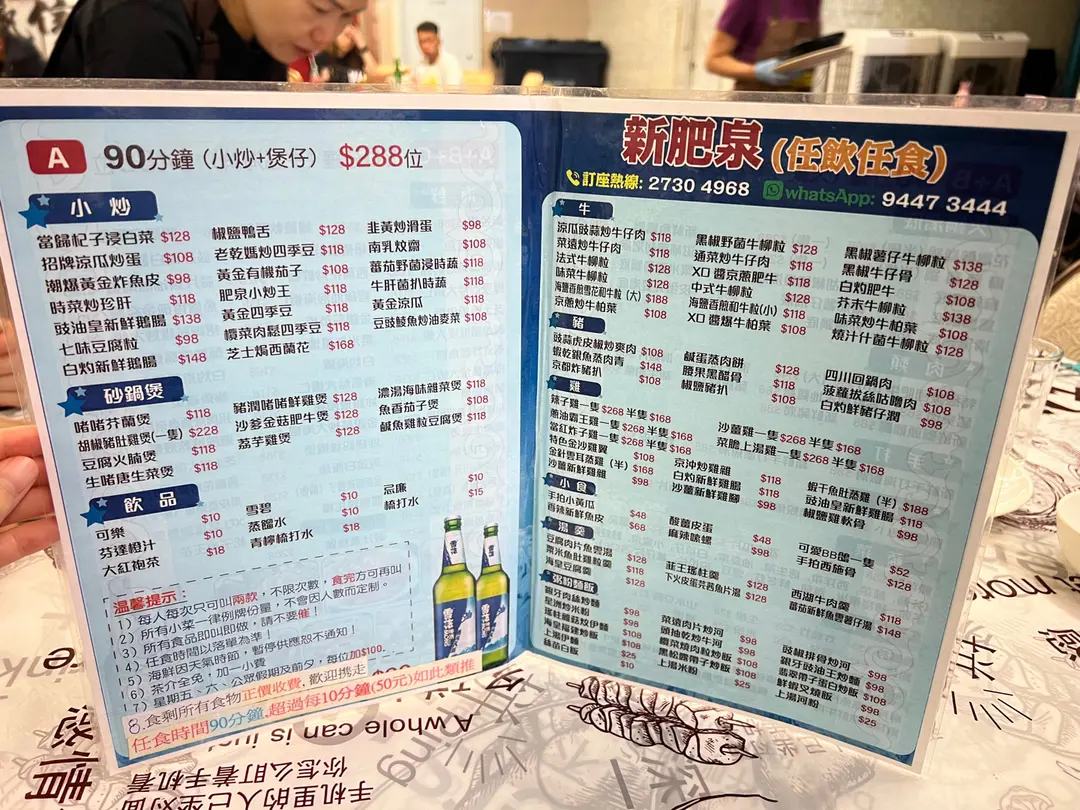 A 90分鐘 (小炒+煲仔) $288位
小炒
當歸杞子浸白菜 $128
招牌涼瓜炒蛋 $108
潮爆黃金炸魚皮 $98
時菜炒珍肝 $118
豉油皇新鮮鵝腸 $138
七味豆腐粒 $98
白灼新鮮鵝腸 $148
椒鹽鴨舌 $128
老乾媽炒四季豆 $118
黃金有機茄子 $108
肥泉小炒王 $118
黃金四季豆 $118
欖菜肉鬆四季豆 $118
芝士焗西蘭花 $168
韭黃炒滑蛋 $98
南乳炆齋 $108
蕃茄野菌浸時蔬 $118
牛肝菌扒時蔬 $118
黃金涼瓜 $118
豆豉鯪魚炒油麥菜 $108
砂鍋煲
啫啫芥蘭煲 $118
胡椒豬肚雞煲(一隻) $228
豆腐火腩煲 $118
生啫唐生菜煲 $118
豬潤啫啫鮮雞煲 $128
沙爹金菇肥牛煲 $128
荔芋雞煲 $128
濃湯海味雜菜煲 $118
魚香茄子煲 $108
鹹魚雞粒豆腐煲 $118
飲品
可樂 $10
芬達橙汁 $10
大紅袍茶 $18
雪碧 $10
蒸餾水 $10
青檸梳打水 $18
忌廉 $10
梳打水 $15
溫馨提示:
1) 每人每次只可叫兩款, 不限次數, 食完方可再叫
2) 所有小菜一律例牌份量, 不會因人數而定制。
3) 所有食品即叫即做, 請不要催!
4) 任食時間以落單為準!
5) 海鮮因天氣時節, 暫停供應恕不通知!
6) 茶介全免, 加一小費
7) 星期五、六、公眾假期及前夕, 每位加$100.
8.食剩所有食物正價收費, 歡迎携走
任食時間90分鐘,超過每10分鐘(50元)如此類推
新肥泉 (任飲任食)
訂座熱線: 2730 4968 whatsApp: 9447 3444
牛
涼瓜豉蒜炒牛仔肉 $118
菜遠炒牛仔肉 $118
法式牛柳粒 $128
味菜牛柳粒 $128
海鹽香煎雪花和牛粒 (大) $188
京蔥炒牛柏葉 $108
黑椒野菌牛柳粒 $128
通菜炒牛仔肉 $118
XO 醬京蔥肥牛 $118
中式牛柳粒 $128
海鹽香煎和牛粒(小) $118
XO 醬爆牛柏葉 $108
黑椒薯仔牛柳粒 $138
黑椒牛仔骨 $128
白灼肥牛 $108
芥末牛柳粒 $138
味菜炒牛柏葉 $108
燒汁什菌牛柳粒 $128
豬
豉蒜虎皮椒炒爽肉 $108
蝦乾銀魚蒸肉青 $148
京都炸豬扒 $108
鹹蛋蒸肉餅 $128
腰果黑醋骨 $118
椒鹽豬扒 $108
四川回鍋肉 $108
菠蘿拔絲咕嚕肉 $108
白灼鮮豬仔潤 $98
雞
辣子雞一隻 $268 半隻 $168
蔥油霸王雞一隻 $268 半隻 $168
當紅炸子雞一隻 $268 半隻 $168
特色金沙雞翼 $108
金針雲耳蒸雞 (半) $168
沙薑新鮮雞雜 $98
沙薑雞一隻 $268 半隻 $168
菜膽上湯雞一隻 $268 半隻 $168
京沖炒雞雜 $118
白灼新鮮雞雜 $118
沙薑新鮮雞腳 $98
蝦干魚肚蒸雞 (半) $188
豉油皇新鮮雞腸 $118
椒鹽雞軟骨 $98
小食
手拍小黃瓜 $48
香辣新鮮魚皮 $68
酸薑皮蛋 $48
麻辣啄螺 $98
可愛BB鴿一隻 $52
手拍西施骨 $98
湯羹
豆腐肉片魚雲湯 $128
粟米魚肚雞粒羹 $118
海皇豆腐羹 $128
韮王瑤柱羹 $118
下火皮蛋芫茜魚片湯 $128
西湖牛肉羹 $118
蕃茄新鮮魚雲薯仔湯 $148
粥粉麵飯
銀牙肉絲炒麵 $98
星洲炒米粉 $98
瑤柱雜菇炆伊麵 $108
海皇福建炒飯 $108
上湯伊麵 $25
絲苗白飯 $10
菜遠肉片炒河 $98
頭抽乾炒牛河 $98
欖菜燒肉粒炒飯 $108
黑松露帶子炒飯 $108
上湯米粉 $25
豉椒排骨炒河 $98
銀牙豉油王炒麵 $98
翡翠帶子蛋白炒飯 $108
鮮蝦叉燒炒飯 $98
上湯河粉 $25
A whole can is just
你怎么盯着手机看
手机里的人已坐对面